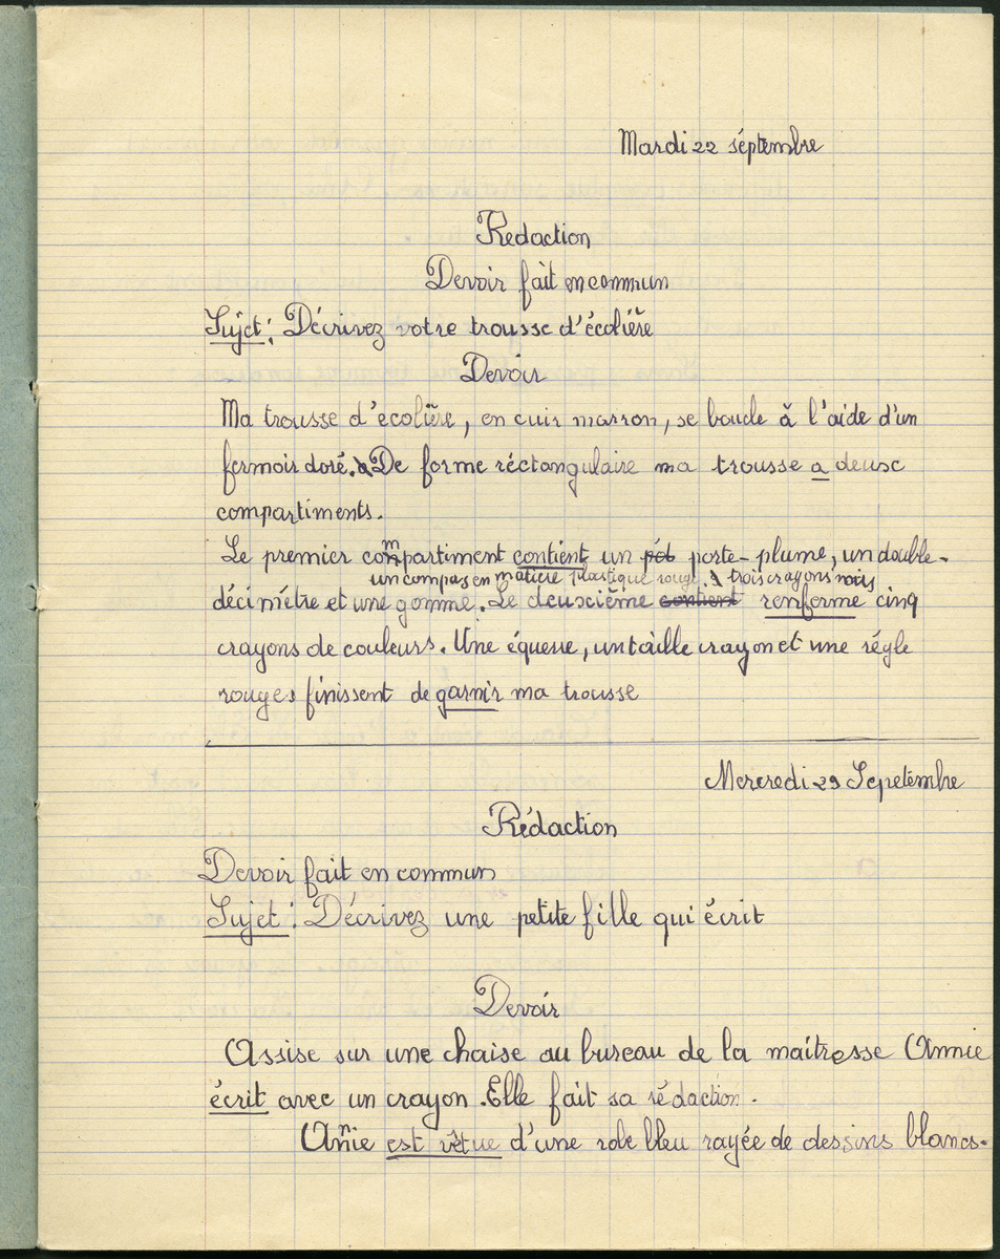 Mardi 22 séptembre
Rédaction
Devoir fait en commun
Sujet : Décrivez votre trousse d'écolière
Devoir
Ma trousse d'ecolière, en cuir marron, se boucle à l'aide d'un
fermoir doré. De forme réctangulaire ma trousse a deusc
compartiments.
Le premier compartiment contient un pot porte-plume, un double-
un compas en matière plastique rouge, trois crayons noirs
décimétre et une gomme. Le deuxième contient renferme cinq
crayons de couleurs. Une équerre, un taille crayon et une régle
rouges finissent de garnir ma trousse
Mercredi 23 Sepetembre
Rédaction
Devoir fait en commun
Sujet : Décrivez une petite fille qui écrit
Devoir
Assise sur une chaise au bureau de la maîtresse Annie
écrit avec un crayon. Elle fait sa rédaction.
Annie est vêtue d'une robe bleu rayée de dessins blancs.